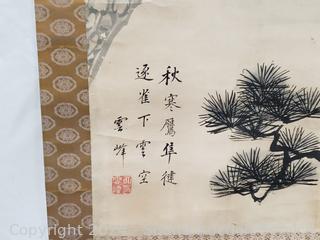 秋寒鷹隼健
逐雀下雲空
雲峰
Copyright 2